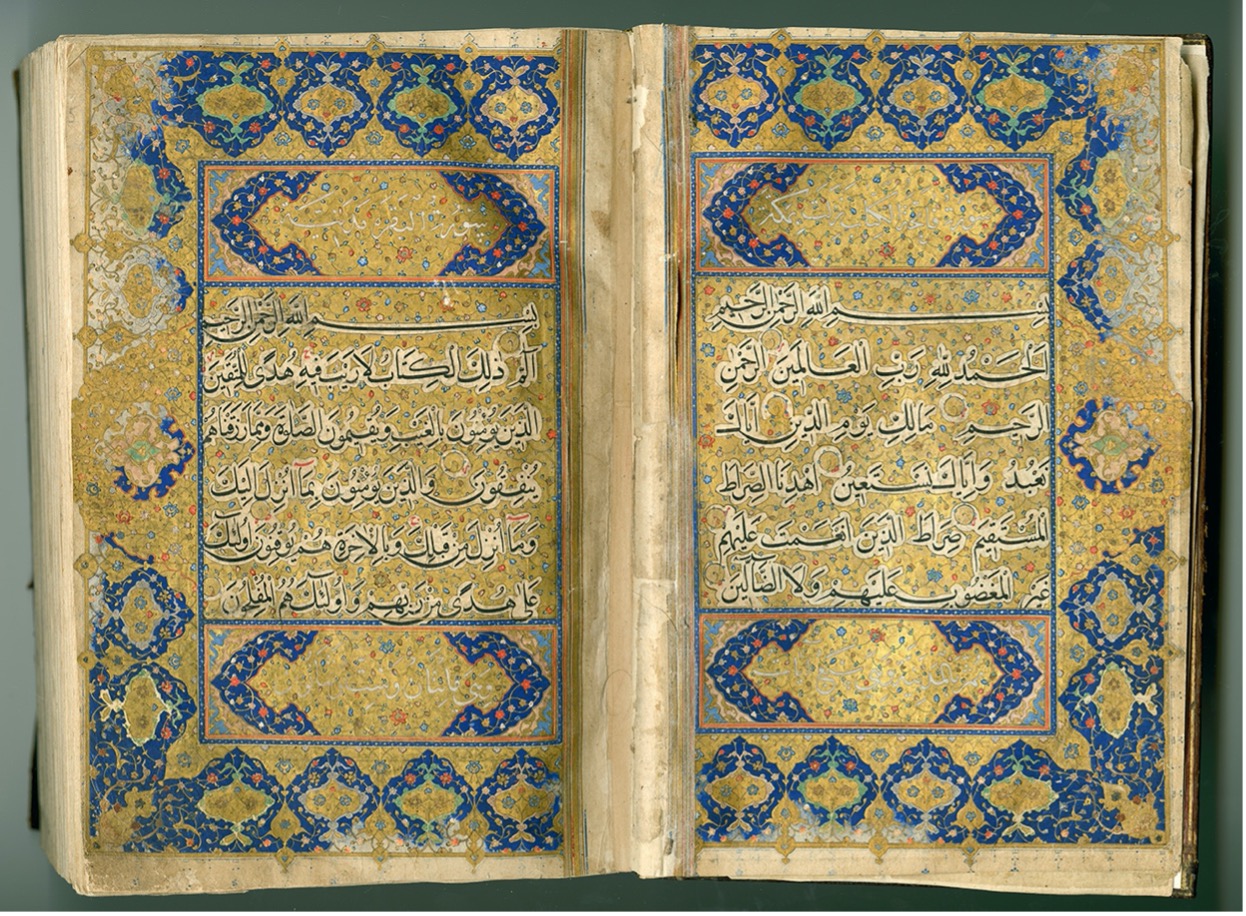 بِسْمِ اللّٰهِ الرَّحْمٰنِ الرَّحِيمِ
الْحَمْدُ لِلّٰهِ رَبِّ الْعَالَمِينَ الرَّحْمٰنِ
الرَّحِيمِ مَالِكِ يَوْمِ الدِّينِ اِيَّاكَ
نَعْبُدُ وَاِيَّاكَ نَسْتَعِينُ اهْدِنَا الصِّرَاطَ
الْمُسْتَقِيمَ صِرَاطَ الَّذِينَ اَنْعَمْتَ عَلَيْهِمْ
غَيْرِ الْمَغْضُوبِ عَلَيْهِمْ وَلَا الضَّالِّينَ
سورة البقرة
بِسْمِ اللّٰهِ الرَّحْمٰنِ الرَّحِيمِ
الٓمٓ ذٰلِكَ الْكِتَابُ لَا رَيْبَ فِيهِ هُدًى لِلْمُتَّقِينَ
الَّذِينَ يُؤْمِنُونَ بِالْغَيْبِ وَيُقِيمُونَ الصَّلٰوةَ وَمِمَّا رَزَقْنَاهُمْ
يُنْفِقُونَ وَالَّذِينَ يُؤْمِنُونَ بِمَٓا اُنْزِلَ اِلَيْكَ
وَمَٓا اُنْزِلَ مِنْ قَبْلِكَ وَبِالْاٰخِرَةِ هُمْ يُوقِنُونَ اُولٰٓئِكَ
عَلٰى هُدًى مِنْ رَبِّهِمْ وَاُولٰٓئِكَ هُمُ الْمُفْلِحُونَ